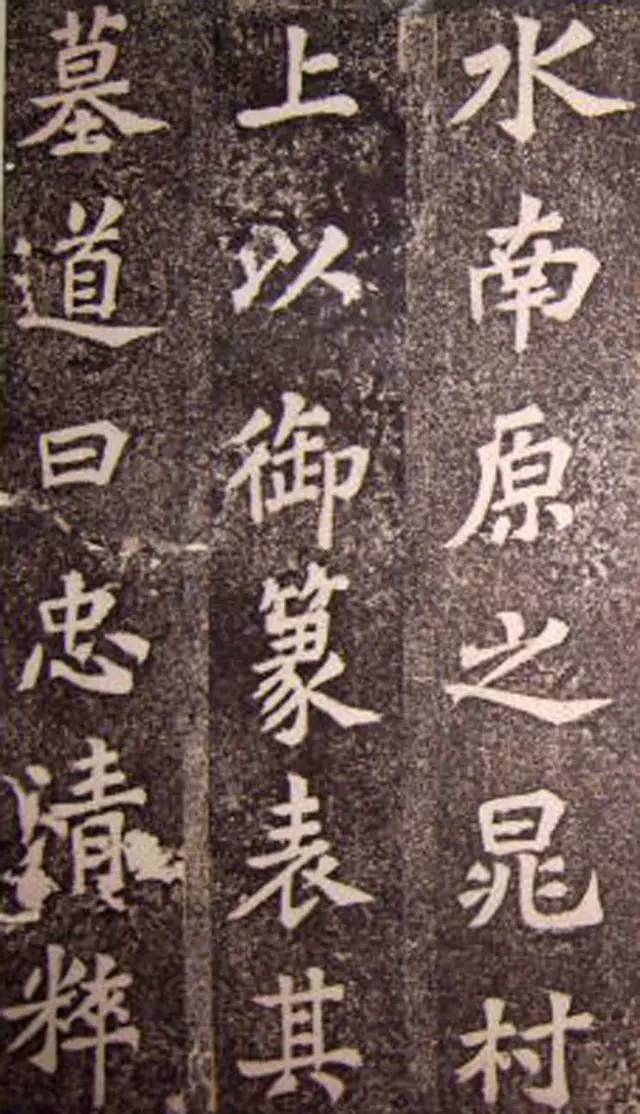 水南原之晁村
上以御篆表其
墓道曰忠清粹